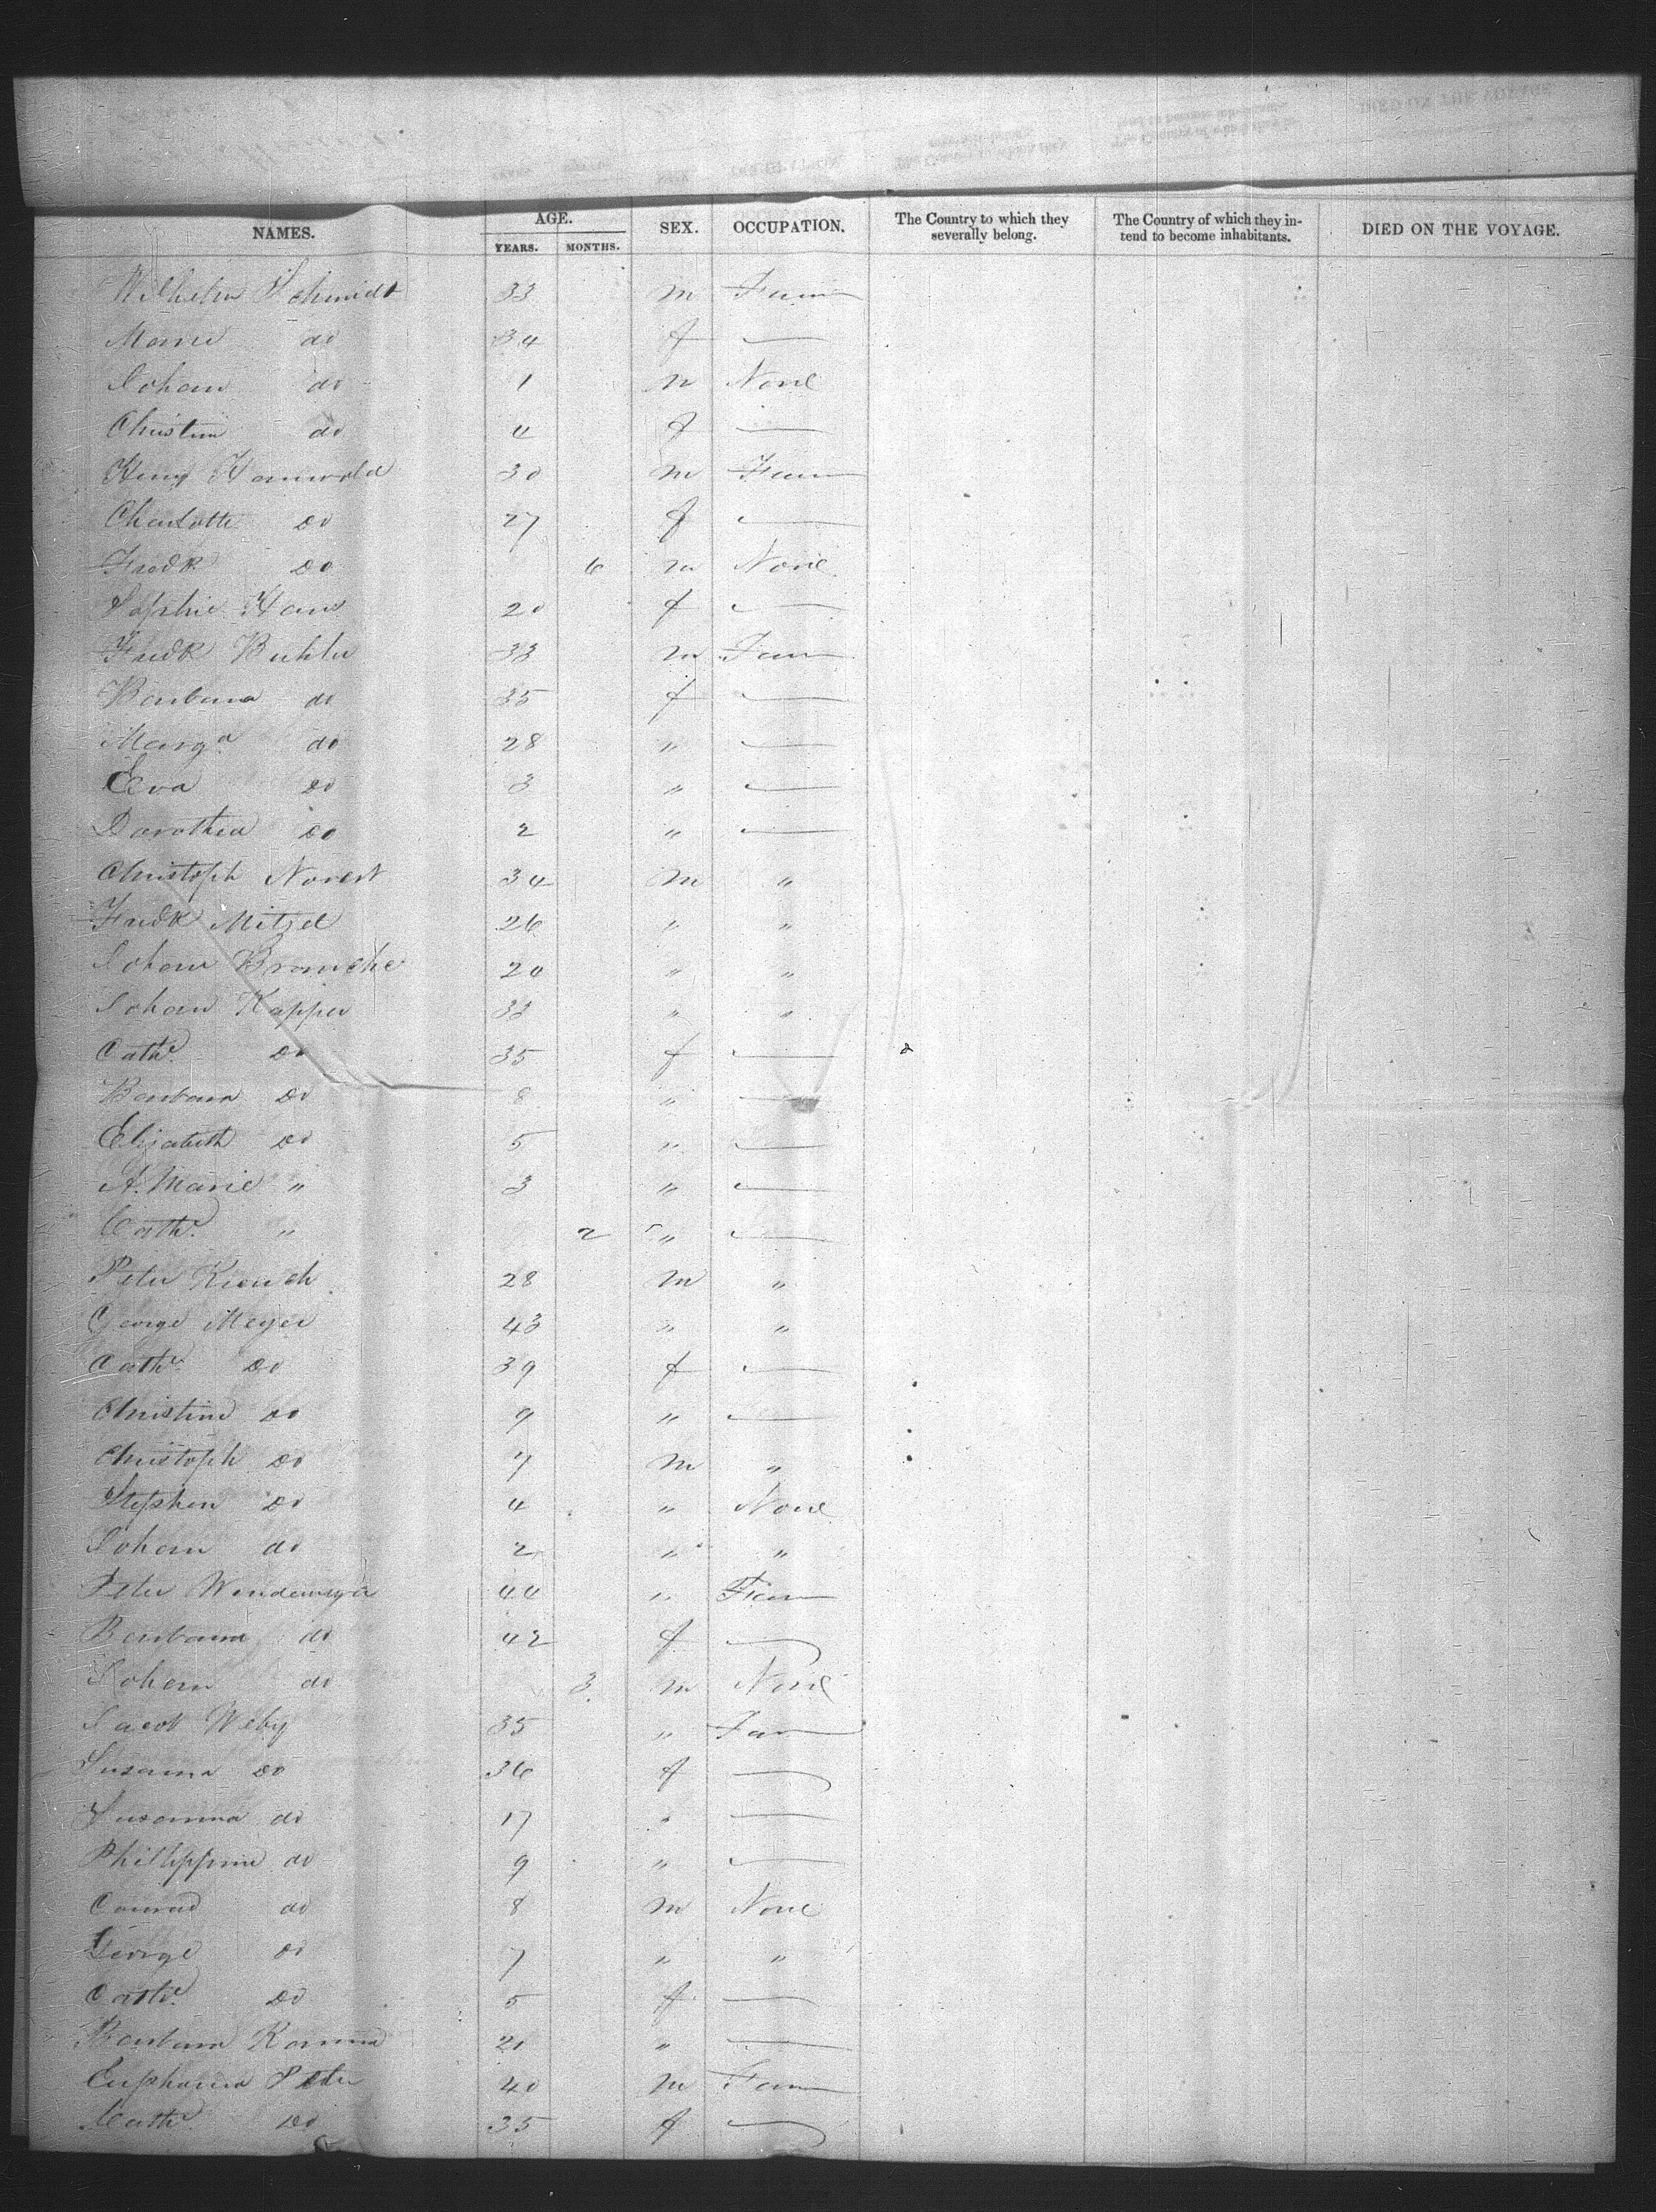 NAMES. AGE. YEARS. MONTHS. SEX. OCCUPATION. The Country to which they severally belong. The Country of which they intend to become inhabitants. DIED ON THE VOYAGE.
Wilhelm Schmidt 33 m Farm
Marie do 34 f —
Johan do 1 m None
Christin do 4 f —
Henry Hannwold 30 m Farm
Charlotte Do 27 f —
Fredk Do 6 m None
Sophie Hans 20 f —
Fredk Buhler 33 m Farm
Barbara do 35 f —
Marga do 28 " —
Eva Do 3 " —
Dorothea Do 2 " —
Christoph Norest 34 m "
Fredk Mitzel 26 " "
Johan Branche 24 " "
Johan Kapper 33 " "
Cathe Do 35 f —
Barbara Do 8 " —
Elizabeth Do 5 " —
A. Marie " 3 " —
Cathe " 2 " —
Peter 28 m "
George Meyer 43 " "
Cathe Do 39 f —
Christine Do 9 " —
Christoph Do 7 m "
Stephen Do 4 " None
Johan do 2 " "
Peter 44 " Farm
Barbara do 42 f —
Johan do 3 m None
Jacob Weby 35 " Farm
Susanna Do 36 f —
Susanna do 17 " —
Phillippine do 9 " —
Conrad do 8 m None
George Do 7 " "
Cathe Do 5 f —
Barbara 20 " —
Euphania Peter 40 m Farm
Cathe Do 35 f —